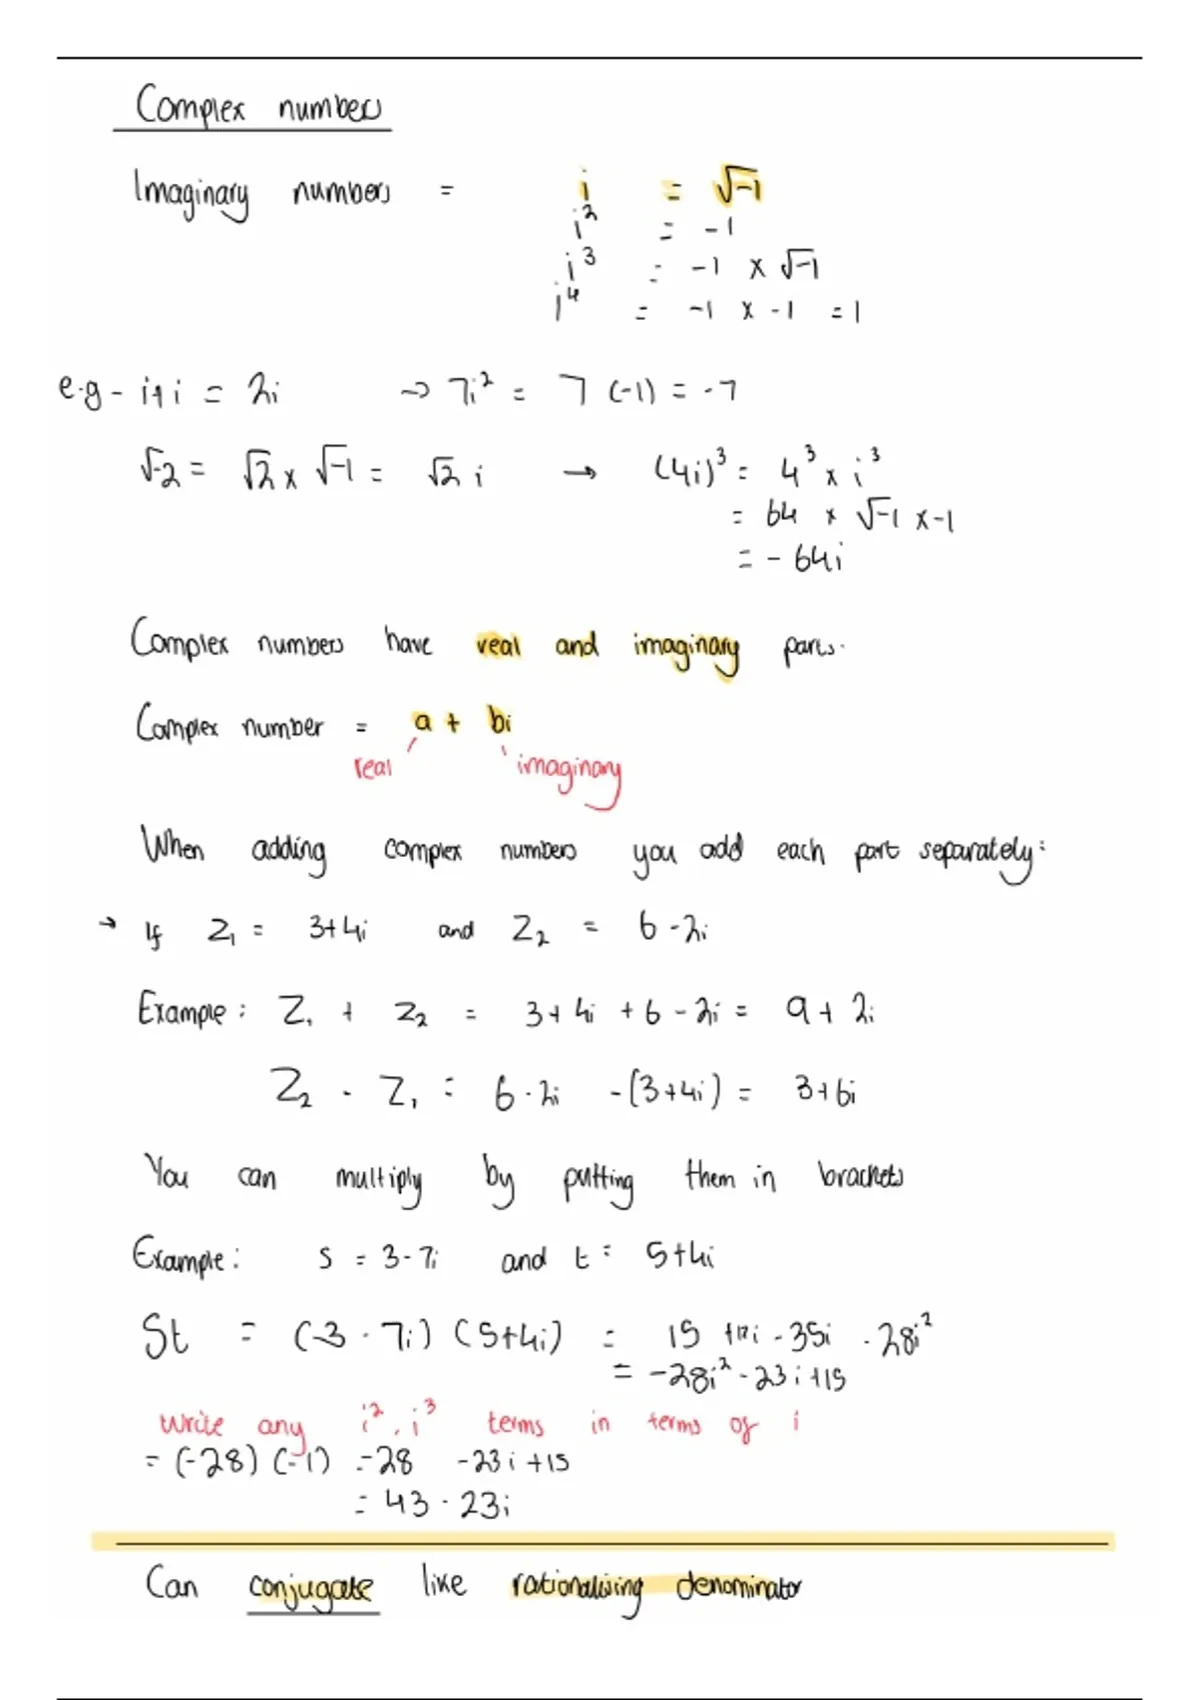 Complex numbers
Imaginary numbers = i = √-1
i² = -1
i³ = -1 × √-1
i⁴ = -1 × -1 = 1
e.g - i+i = 2i → 7i² = 7 (-1) = -7
√-2 = √2 × √-1 = √2 i → (4i)³ = 4³ × i³
= 64 × √-1 × -1
= - 64i
Complex numbers have real and imaginary parts.
Complex number = a + bi
real imaginary
When adding complex numbers you add each part separately:
→ If Z₁ = 3+4i and Z₂ = 6 - 2i
Example: Z₁ + Z₂ = 3+4i + 6 - 2i = 9 + 2i
Z₂ - Z₁ = 6 - 2i - (3+4i) = 3+6i
You can multiply by putting them in brackets
Example: S = 3 - 7i and t = 5+4i
St = (-3 - 7i) (5+4i) = 15 +12i - 35i - 28i²
= -28i² - 23i +15
Write any i², i³ terms in terms of i
= (-28) (-1) = 28 - 23i +15
= 43 - 23i
Can conjugate like rationalising denominator